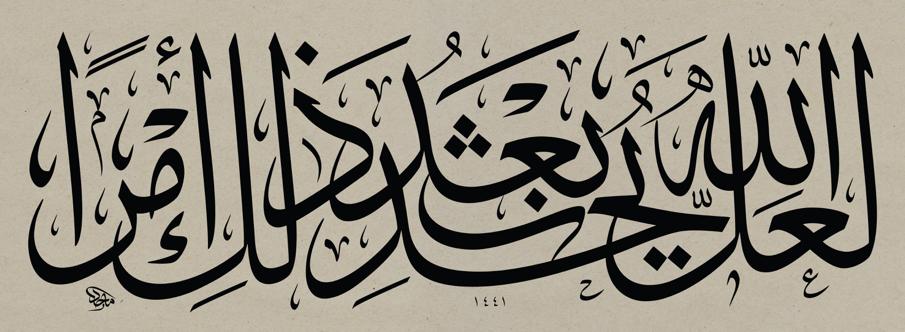 لَعَلَّ اللَّهَ يُحْدِثُ بَعْدَ ذَٰلِكَ أَمْرًا
١٤٤١